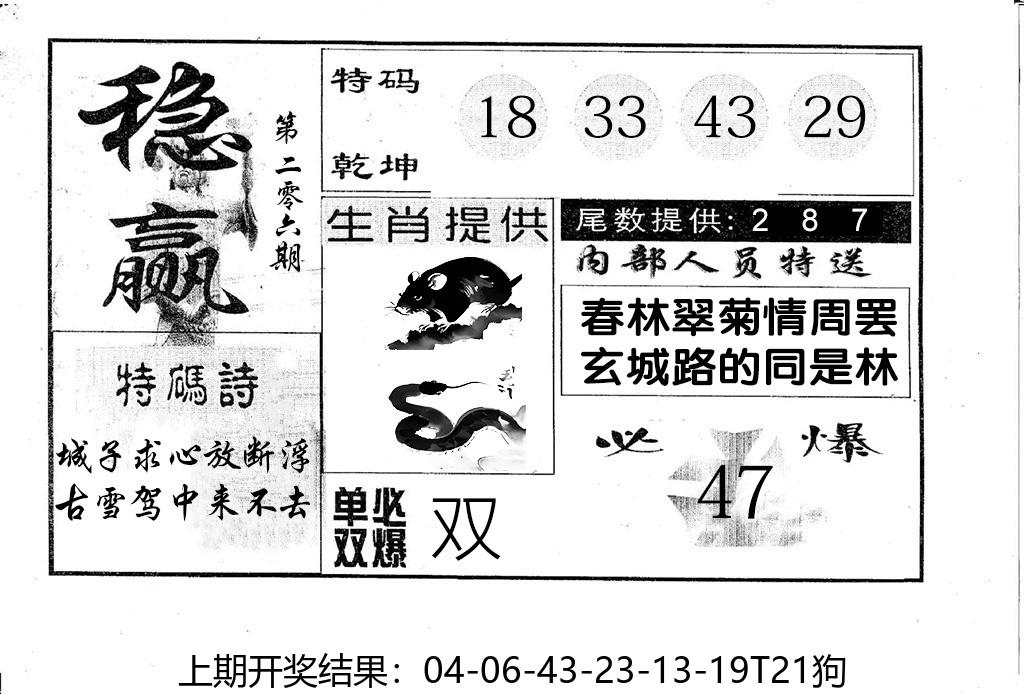 稳赢
第二零六期
特码
乾坤
18 33 43 29
生肖提供
尾数提供: 2 8 7
内部人员特送
春林翠菊情周罢
玄城路的同是林
特碼詩
城子求心放断浮
古雪驾中来不去
单双
必爆
双
必爆
47
上期开奖结果：04-06-43-23-13-19T21狗